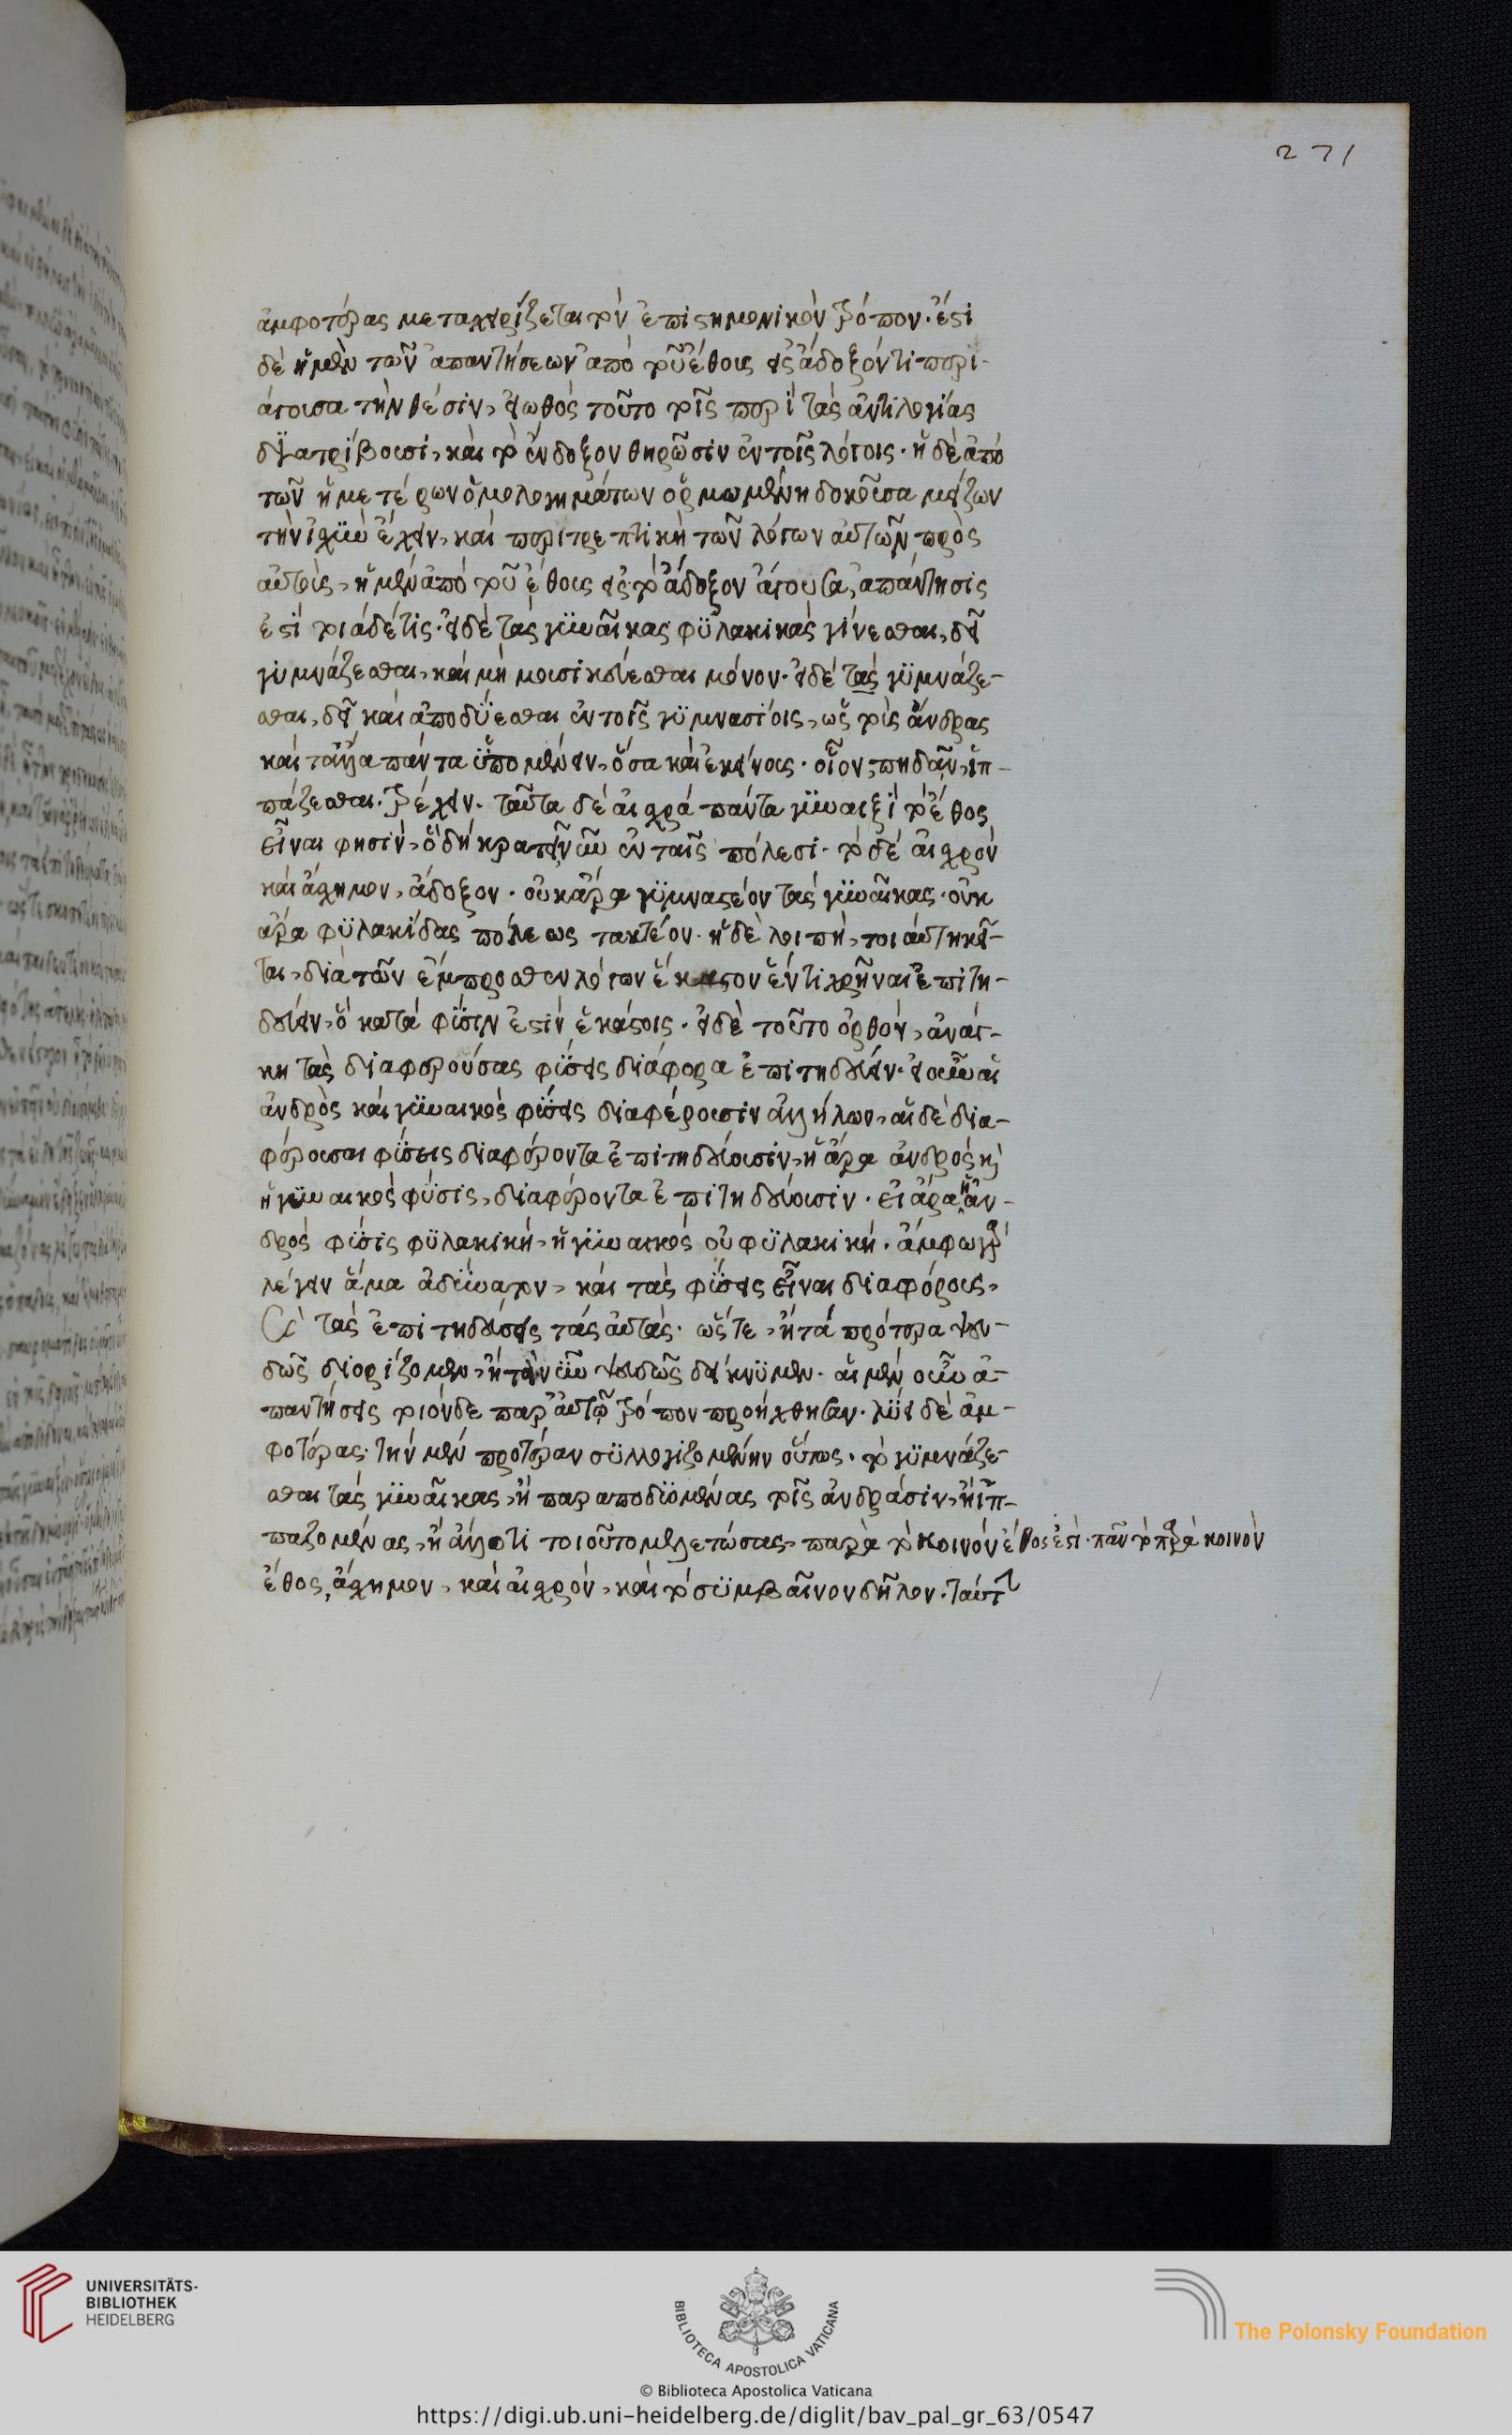 271
ἀμφοτέρας μεταχειρίζεται τὸν ἐπιστημονικὸν τρόπον· ἔστι
δὲ ἡ μὲν τῶν ἀπαντήσεων ἀπὸ τοῦ ἔθους εἰς ἄδοξόν τι περι-
άγουσα τὴν θέσιν, εἰωθὸς τοῦτο τοῖς περὶ τὰς ἀντιλογίας
διατρίβουσι, καὶ τὸ ἔνδοξον θηρῶσιν ἐν τοῖς λόγοις· ἡ δὲ ἀπὸ
τῶν ἡμετέρων ὁμολογημάτων ὁρμωμένη δοκοῦσα μείζων
τὴν ἰσχὺν ἔχειν, καὶ περιτρεπτικὴ τῶν λόγων αὐτῶν πρὸς
αὐτοὺς, ἡ μὲν ἀπὸ τοῦ ἔθους εἰς τὸ ἄδοξον ἄγουσα, ἀπάντησις
ἐστὶ τοιάδέ τις· εἰ δεῖ τὰς γυναῖκας φυλακικὰς γίνεσθαι, δεῖ
γυμνάζεσθαι, καὶ μὴ μουσικεύεσθαι μόνον· εἰ δὲ τὰς γυμνάζε-
σθαι, δεῖ καὶ ἀποδύεσθαι ἐν τοῖς γυμνασίοις, ὡς τοὺς ἄνδρας
καὶ τἄλλα πάντα ὑπομένειν, ὅσα καὶ ἐκείνους· οἷον, πηδᾶν, ἱπ-
πάζεσθαι· τρέχειν· ταῦτα δὲ αἰσχρὰ πάντα γυναιξὶ τὸ ἔθος
εἶναι φησὶν, ὃ δὴ κρατεῖ νῦν ἐν ταῖς πόλεσι· τὸ δὲ αἰσχρὸν
καὶ ἄσχημον, ἄδοξον· οὐκ ἄρα γυμναστέον τὰς γυναῖκας· οὐκ
ἄρα φυλακίδας πόλεως τακτέον· ἡ δὲ λοιπὴ, τοιαύτη κεῖ-
ται, διὰ τῶν ἔμπροσθεν λόγων ἕκαστον ἕν τι χρῆναι ἐπιτη-
δεύειν, ὃ κατὰ φύσιν ἐστὶν ἑκάστοις· εἰ δὲ τοῦτο ὀρθὸν, ἀνάγ-
κη τὰς διαφερούσας φύσεις διάφορα ἐπιτηδεύειν· εἰ οὖν αἱ
ἀνδρὸς καὶ γυναικὸς φύσεις διαφέρουσιν ἀλλήλων, αἱ δὲ δια-
φέρουσαι φύσεις διαφέροντα ἐπιτηδεύουσιν, ἡ ἄρα ἀνδρὸς καὶ
ἡ γυναικὸς φύσις, διαφέροντα ἐπιτηδεύουσιν· εἰ ἄρα ἡ ἀν-
δρὸς φύσις φυλακικὴ, ἡ γυναικὸς οὐ φυλακική· ἄμφω γὰρ
λέγειν ἅμα ἀδύνατον, καὶ τὰς φύσεις εἶναι διαφόρους,
καὶ τὰς ἐπιτηδεύσεις τὰς αὐτάς· ὥστε, ἢ τὰ πρότερα ψευ-
δῶς διορίζομεν, ἢ τὰ νῦν ψευδῶς δείκνυμεν· αἱ μὲν οὖν ἀ-
παντήσεις τοιόνδε παρ' αὐτῷ τρόπον προήχθησαν· λύει δὲ ἀμ-
φοτέρας· τὴν μὲν προτέραν συλλογιζομένην οὕτως· τὸ γυμνάζε-
σθαι τὰς γυναῖκας, ἢ παραποδυομένας τοῖς ἀνδράσιν, ἢ ἱπ-
παζομένας, ἢ ἄλλό τι τοιοῦτο μελετώσας, παρὰ τὸ κοινὸν ἔθος ἐστὶ· πᾶν τὸ παρὰ κοινὸν
ἔθος, ἄσχημον, καὶ αἰσχρόν, καὶ τὸ συμβαῖνον δῆλον· ταύτ
UNIVERSITÄTS-
BIBLIOTHEK
HEIDELBERG
BIBLIOTECA APOSTOLICA VATICANA
The Polonsky Foundation
© Biblioteca Apostolica Vaticana
https://digi.ub.uni-heidelberg.de/diglit/bav_pal_gr_63/0547